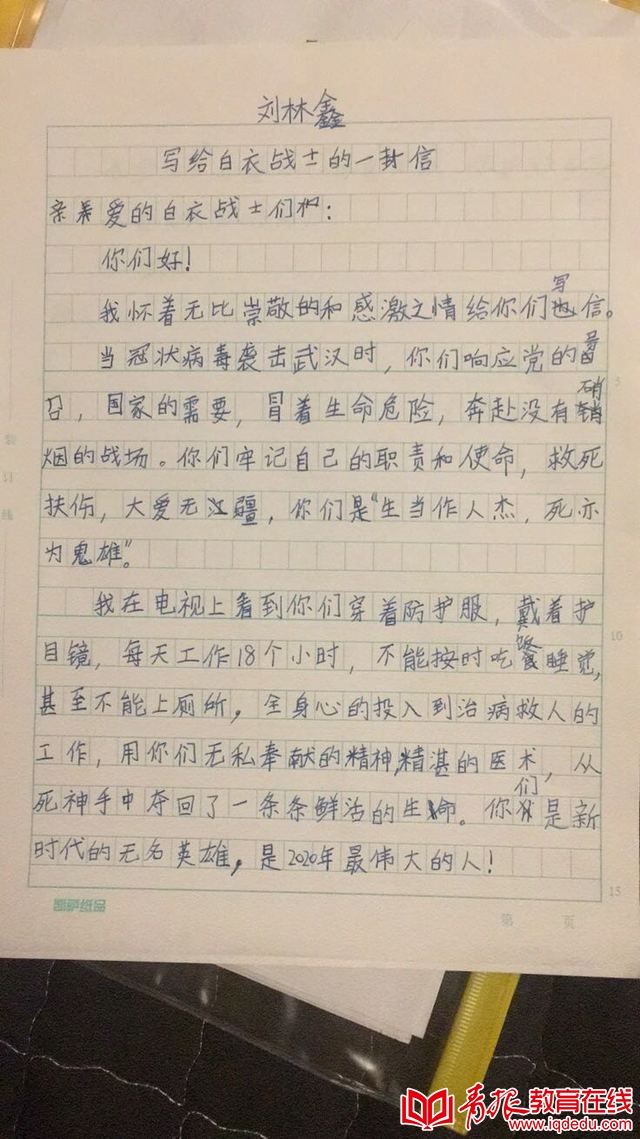 刘林鑫
写给白衣战士的一封信
亲爱的白衣战士们：
你们好！
我怀着无比崇敬的和感激之情给你们写信。
当冠状病毒袭击武汉时，你们响应党的号
召，国家的需要，冒着生命危险，奔赴没有硝
烟的战场。你们牢记自己的职责和使命，救死
扶伤，大爱无疆，你们是“生当作人杰，死亦
为鬼雄”。
我在电视上看到你们穿着防护服，戴着护
目镜，每天工作18个小时，不能按时吃饭睡觉，
甚至不能上厕所，全身心的投入到治病救人的
工作，用你们无私奉献的精神，精湛的医术，从
死神手中夺回了一条条鲜活的生命。你们是新
时代的无名英雄，是2020年最伟大的人！
装
订
线
5
10
15
第 页
青报教育在线
www.iqdedu.com